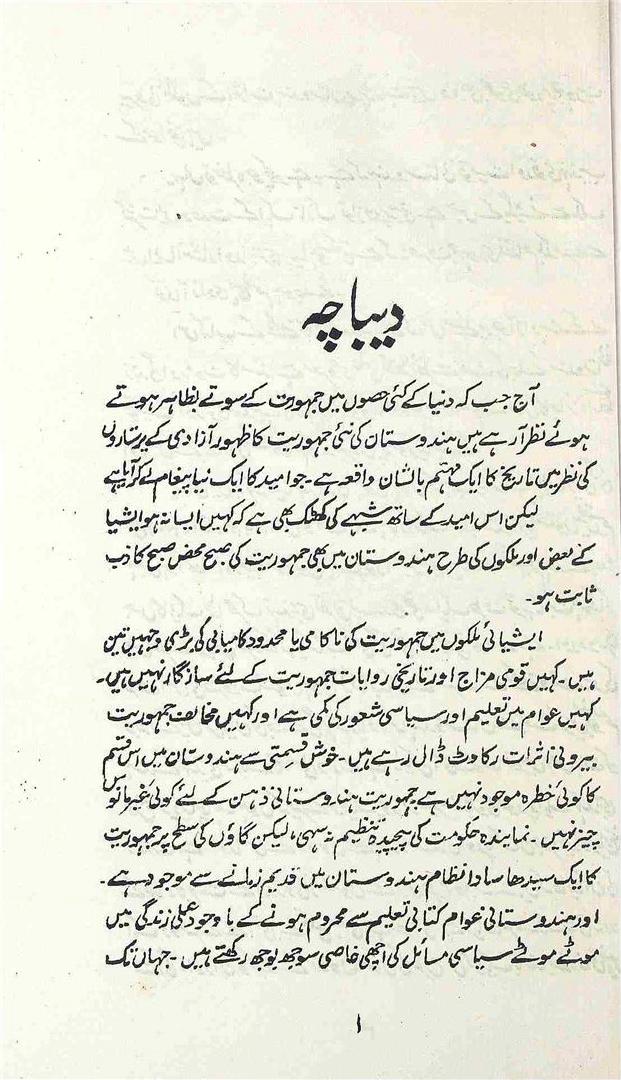 دیباچہ
آج جب کہ دنیا کے کئی حصوں میں جمہوریت کے سوتے بظاہر ہوتے
ہوئے نظر آرہے ہیں ہندوستان کی نئی جمہوریت کا ظہور آزادی کے پرستاروں
کی نظر میں تاریخ کا ایک مہتم بالشان واقعہ ہے۔ جو امید کا ایک نیا پیغام لے کر آیا ہے
لیکن اس امید کے ساتھ شبہے کی کھٹک بھی ہے کہ کہیں ایسا نہ ہو ایشیا
کے بعض اور ملکوں کی طرح ہندوستان میں بھی جمہوریت کی صبح محض صبح کاذب
ثابت ہو۔
ایشیائی ملکوں میں جمہوریت کی ناکامی یا محدود کامیابی کی بڑی وجہیں تین
ہیں۔ کہیں قومی مزاج اور تاریخی روایات جمہوریت کے لئے سازگار نہیں ہیں۔
کہیں عوام میں تعلیم اور سیاسی شعور کی کمی ہے اور کہیں مخالف جمہوریت
بیرونی اثرات رکاوٹ ڈال رہے ہیں۔ خوش قسمتی سے ہندوستان میں اس قسم
کا کوئی خطرہ موجود نہیں ہے جمہوریت ہندوستانی ذہن کے لئے کوئی غیر مانوس
چیز نہیں۔ نمایندہ حکومت کی پیچیدہ تنظیم نہ سہی، لیکن گاؤں کی سطح پر جمہوریت
کا ایک سیدھا سادا نظام ہندوستان میں قدیم زمانے سے موجود ہے۔
اور ہندوستانی عوام کتابی تعلیم سے محروم ہونے کے باوجود عملی زندگی میں
موٹے موٹے سیاسی مسائل کی اچھی خاصی سوجھ بوجھ رکھتے ہیں۔ جہاں تک
۱